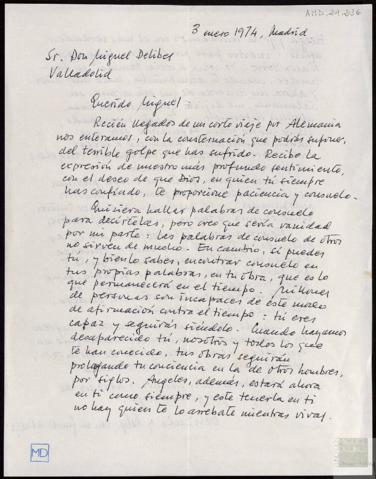 AMD.24.236
3 enero 1974, Madrid
Sr. Don Miguel Delibes
Valladolid
Querido Miguel:
Recién llegados de un corto viaje por Alemania
nos enteramos, con la consternación que podrás suponer,
del terrible golpe que has sufrido. Recibe la
expresión de nuestro más profundo sentimiento,
con el deseo de que Dios, en quien tú siempre
has confiado, te proporcione paciencia y consuelo.
Quisiera hallar palabras de consuelo
para decírtelas, pero creo que sería vanidad
por mi parte: las palabras de consuelo de otros
no sirven de mucho. En cambio, sí puedes
tú, y bien lo sabes, encontrar consuelo en
tus propias palabras, en tu obra, que es lo
que permanecerá en el tiempo. Millones
de personas son incapaces de este modo
de afirmación contra el tiempo: tú eres
capaz y seguirás siéndolo. Cuando hayamos
desaparecido tú, nosotros y todos los que
te han conocido, tus obras seguirán
prolongando tu conciencia en la de otros hombres,
por siglos. Ángeles, además, estará ahora
en ti como siempre, y este tenerla en ti
no hay quien te lo arrebate mientras vivas.
MD